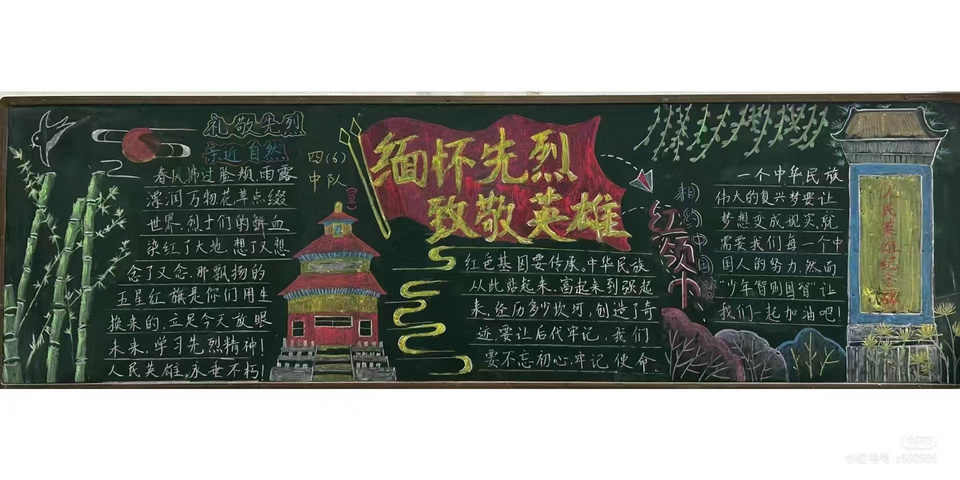 礼敬先烈
亲近自然
春风拂过脸颊,雨露
滋润万物花草点缀
世界,烈士们的鲜血
染红了大地,想了又想
念了又念,那飘扬的
五星红旗是你们用生
换来的,立足今天放眼
未来,学习先烈精神!
人民英雄,永垂不朽!
四(6)
中队
缅怀先烈
致敬英雄
红色基因要传承。中华民族
从此站起来,富起来到强起
来,经历多少坎坷,创造了奇
迹,要让后代牢记,我们
要不忘初心,牢记使命。
相约中国梦
红领巾
一个中华民族
伟大的复兴梦要让
梦想变成现实,就
需要我们每一个中
国人的努力,然而
“少年智则国智”让
我们一起加油吧!
人民英雄纪念碑
小红书
小红书号: